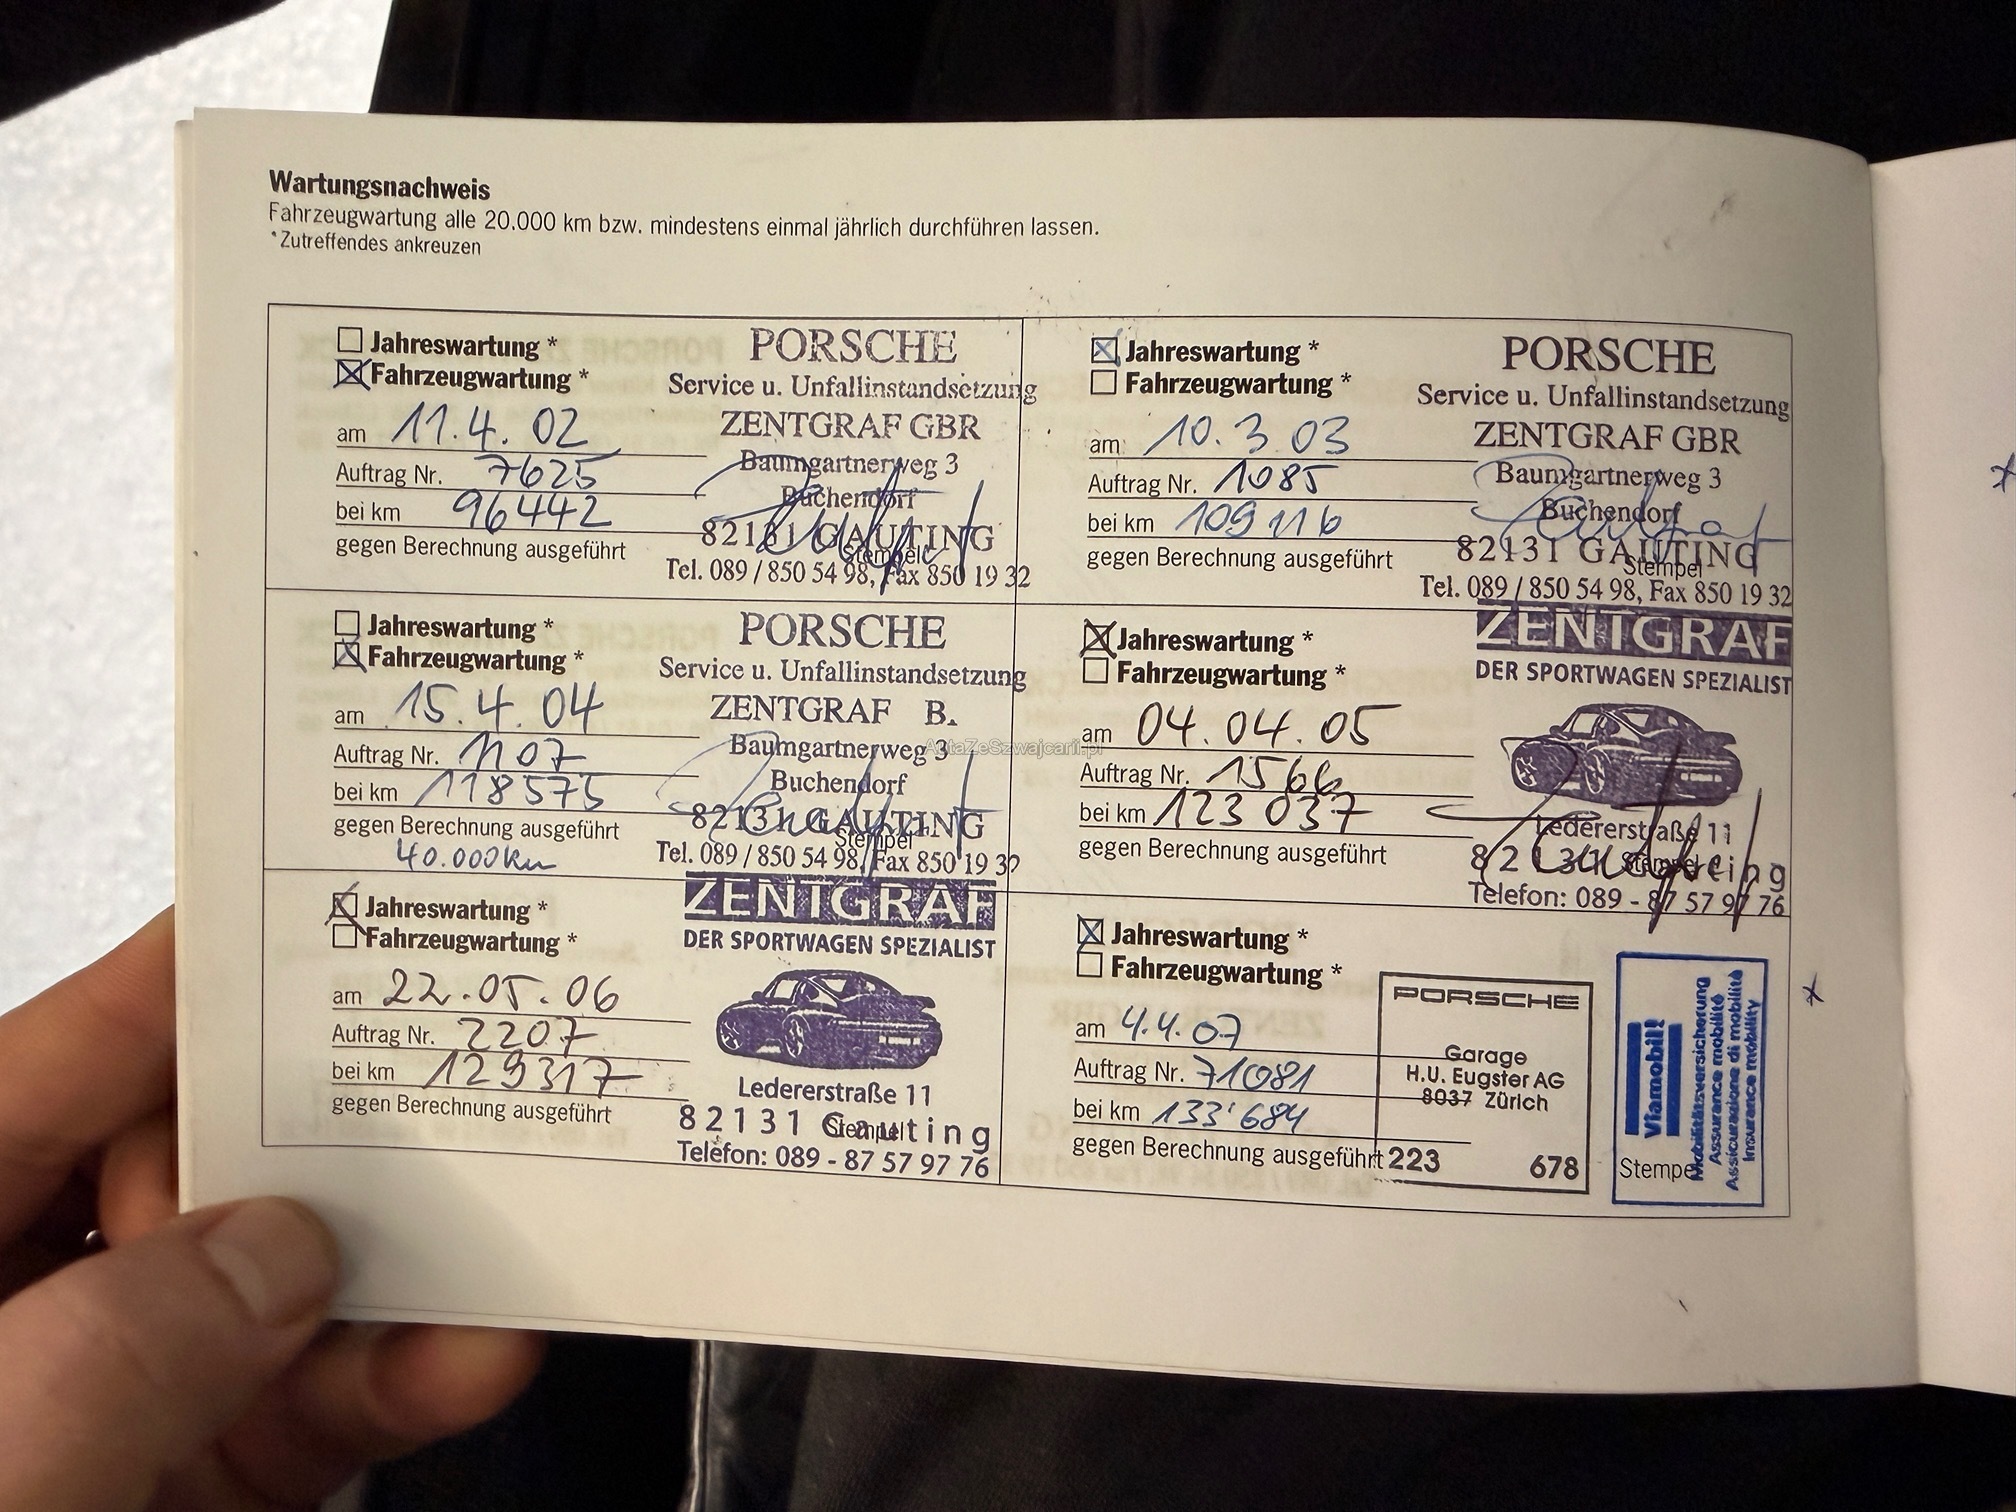 Wartungsnachweis
Fahrzeugwartung alle 20.000 km bzw. mindestens einmal jährlich durchführen lassen.
*Zutreffendes ankreuzen
Jahreswartung *
Fahrzeugwartung *
am 11.4.02
Auftrag Nr. 7625
bei km 96442
gegen Berechnung ausgeführt
PORSCHE
Service u. Unfallinstandsetzung
ZENTGRAF GBR
Baumgartnerweg 3
Buchendorf
82131 GAUTING
Stempel
Tel. 089 / 850 54 98, Fax 850 19 32
Jahreswartung *
Fahrzeugwartung *
am 10.3.03
Auftrag Nr. 1085
bei km 109116
gegen Berechnung ausgeführt
PORSCHE
Service u. Unfallinstandsetzung
ZENTGRAF GBR
Baumgartnerweg 3
Buchendorf
82131 GAUTING
Stempel
Tel. 089 / 850 54 98, Fax 850 19 32
Jahreswartung *
Fahrzeugwartung *
am 15.4.04
Auftrag Nr. 1107
bei km 118575
gegen Berechnung ausgeführt
40.000km
PORSCHE
Service u. Unfallinstandsetzung
ZENTGRAF B.
Baumgartnerweg 3
Buchendorf
82131 GAUTING
Stempel
Tel. 089 / 850 54 98, Fax 850 19 32
AutaZeSzwajcarii.pl
Jahreswartung *
Fahrzeugwartung *
am 04.04.05
Auftrag Nr. 1566
bei km 123 037
gegen Berechnung ausgeführt
ZENTGRAF
DER SPORTWAGEN SPEZIALIST
Ledererstraße 11
82131 Gauting
Stempel
Telefon: 089 - 87 57 97 76
Jahreswartung *
Fahrzeugwartung *
am 22.05.06
Auftrag Nr. 2207
bei km 129317
gegen Berechnung ausgeführt
ZENTGRAF
DER SPORTWAGEN SPEZIALIST
Ledererstraße 11
82131 Gauting
Stempel
Telefon: 089 - 87 57 97 76
Jahreswartung *
Fahrzeugwartung *
am 4.4.07
Auftrag Nr. 71081
bei km 133'684
gegen Berechnung ausgeführt
PORSCHE
Garage
H.U. Eugster AG
8037 Zürich
223 678
Stempel
Viamobil!
Mobilitätsversicherung
Assurance mobilité
Assicurazione di mobilità
Insurance mobility